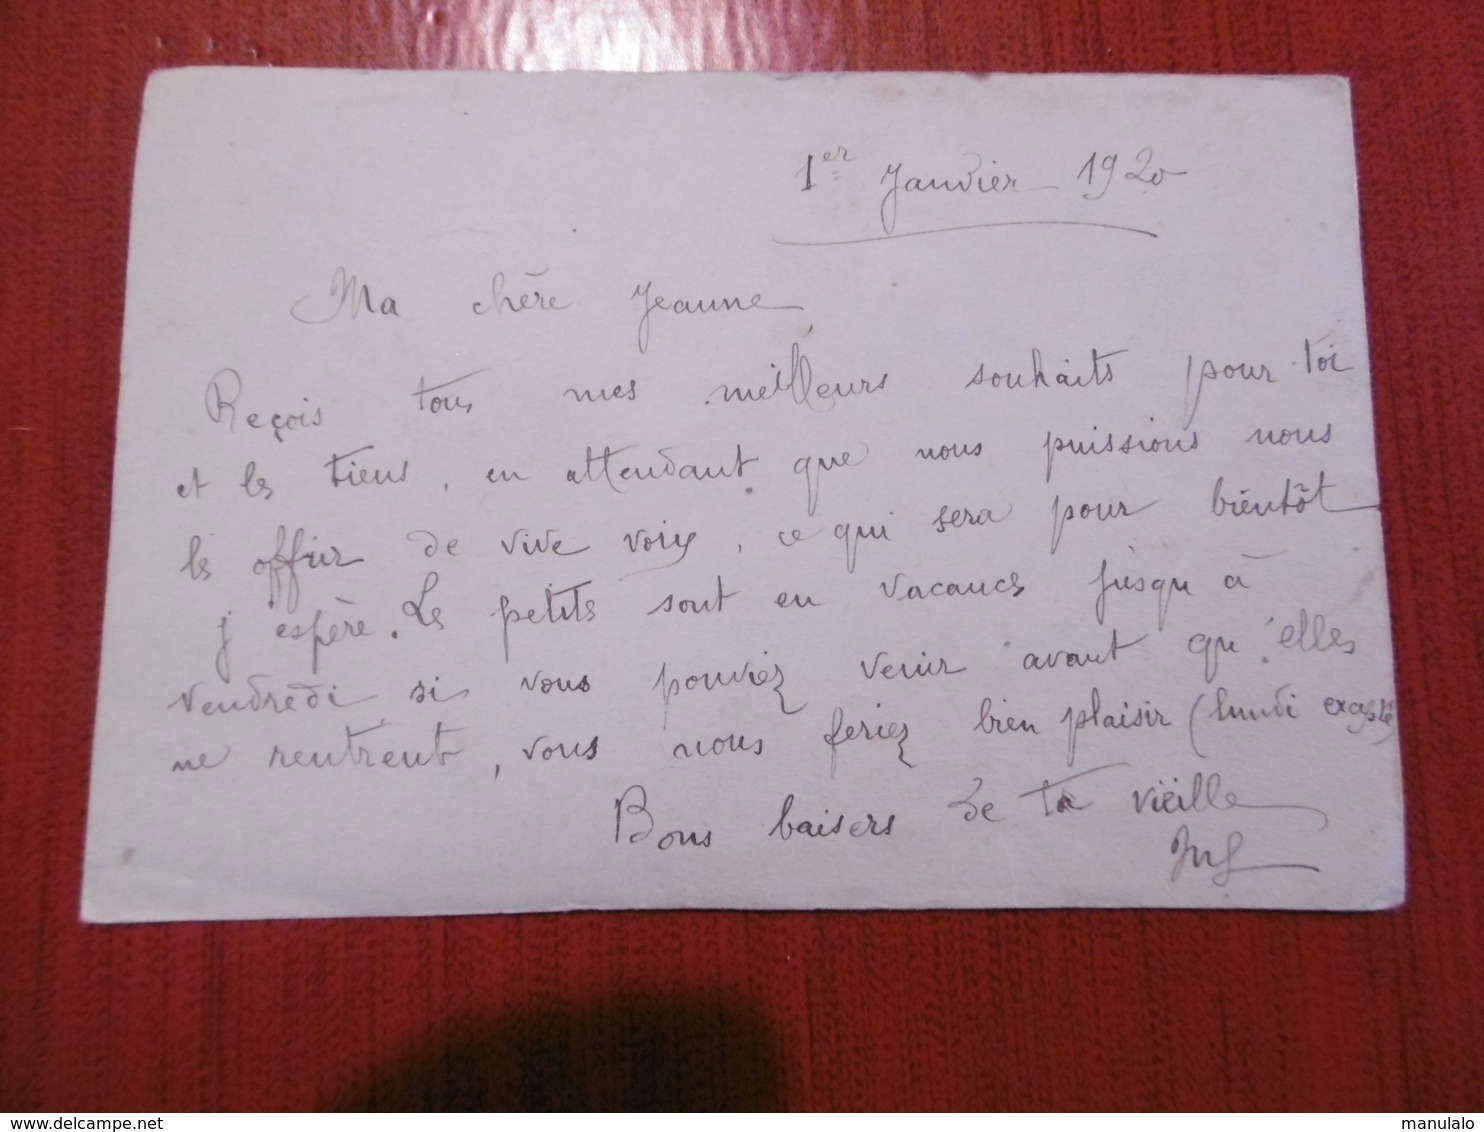 1er Janvier 1920
Ma chère Jeanne
Reçois tous mes meilleurs souhaits pour toi
et les tiens, en attendant que nous puissions nous
les offrir de vive voix, ce qui sera pour bientôt
j'espère. Les petites sont en vacances jusqu'à
vendredi, si vous pouviez venir avant qu'elles
ne rentrent, vous nous feriez bien plaisir (lundi excepté)
Bons baisers de ta vieille
manulalo